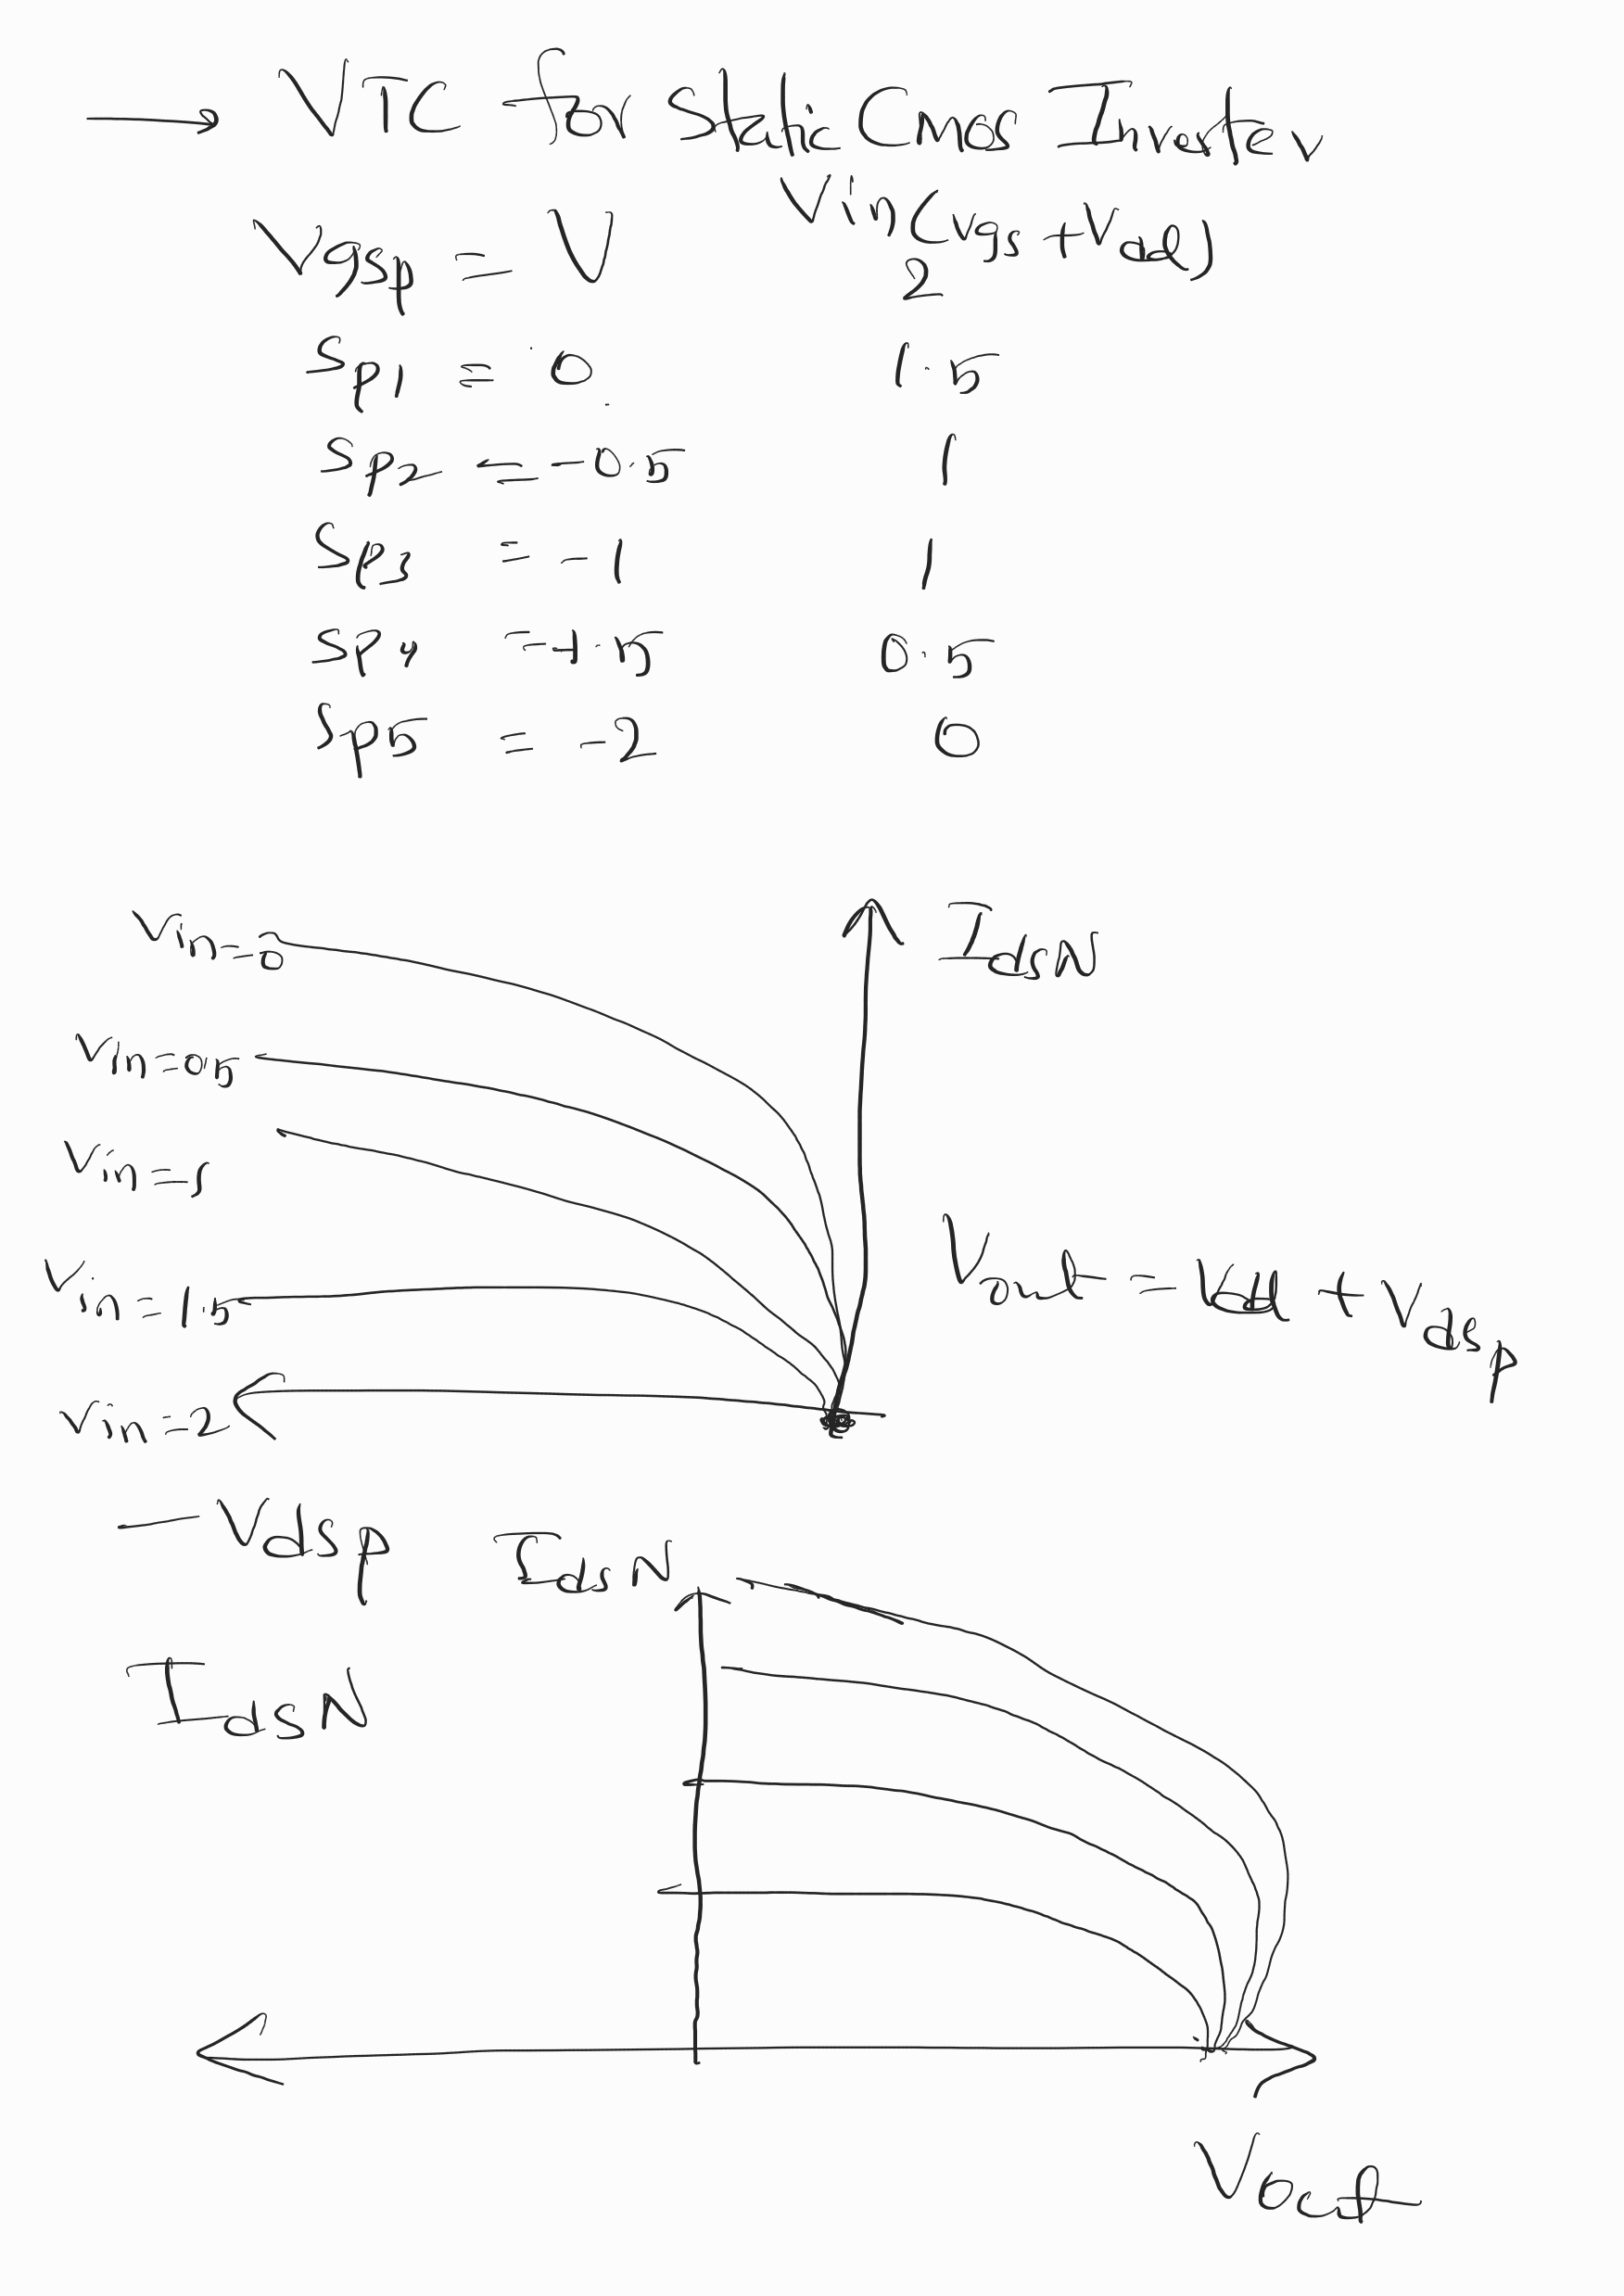 → VTC for Static Cmos Inverter
Vgsp = V Vin(Vgs + Vdd)
2
Sp1 = 0 1.5
Sp2 = -0.5 1
Sp3 = -1 1
Sp4 = -1.5 0.5
Sp5 = -2 0
Vin=0
IdsN
Vin=0.5
Vin=1
Vin=1.5
Vout = Vdd + Vdsp
Vin=2
-Vdsp
IdsN
IdsN
Vout